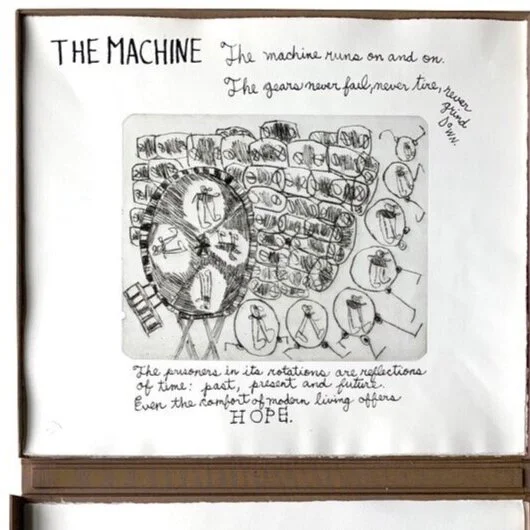 THE MACHINE
The machine runs on and on.
The gears never fail, never tire, never
grind
down.
The prisoners in its rotations are reflections
of time: past, present and future.
Even the comfort of modern living offers
HOPE.